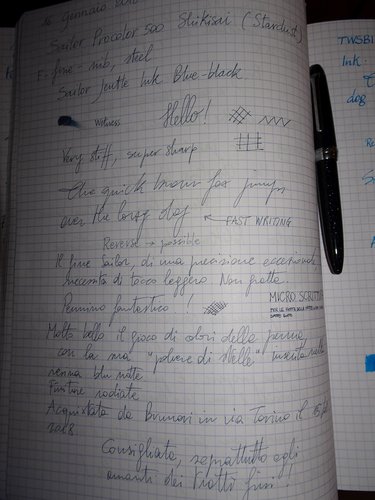 16 Gennaio
Sailor Procolor 500 Shikisai (Stardust)
F. fine - nib, steel
Sailor Jentle Ink Blue-black
Wetness Hello!
Very stiff, super sharp
The quick brown fox jumps
over the lazy dog ← FAST WRITING
Reverse → possible
Il fine Sailor, di una precisione eccezionale
necessità di tocco leggero. Non gratta.
Pennino fantastico!
MICRO SCRITTURA
Molto bello il gioco di colori della penna,
con la sua "polvere di stelle" inserita nella
resina blu notte
Finiture rodiate
Acquistata da Brunori in via Torino il
2018
Consigliata, soprattutto agli
amanti dei Tratti fini!
TWSBI
Ink.
dog